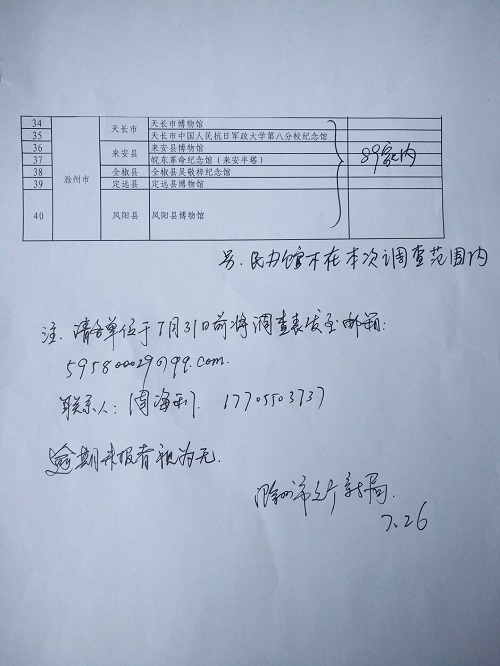 34 天长市 天长市博物馆
35 天长市中国人民抗日军政大学第八分校纪念馆
36 来安县 来安县博物馆
37 皖东革命纪念馆（来安半塔）
38 全椒县 全椒县吴敬梓纪念馆
39 定远县 定远县博物馆
40 滁州市 凤阳县 凤阳县博物馆
89家内
另.民办馆不在本次调查范围内
注.请各单位于7月31日前将调查表发至邮箱:
59580029@qq.com.
联系人: 周海 17705503737
逾期未报者视为无.
滁州市文广新局.
7.26